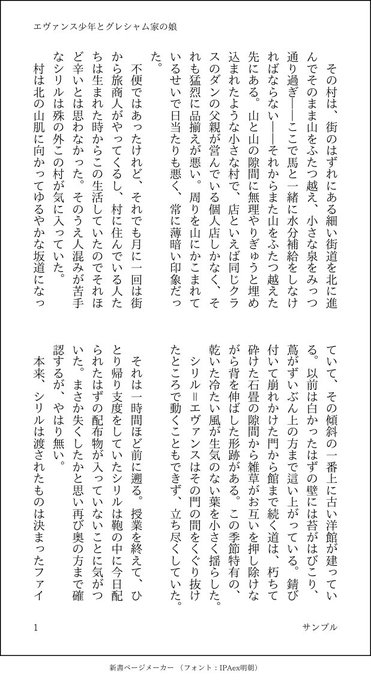 エヴァンス少年とグレシャム家の娘
その村は、街のはずれにある細い街道を北に進
んでそのまま山をふたつ越え、小さな泉をみっつ
通り過ぎ――ここで馬と一緒に水分補給をしなけ
ればならない――それからまた山をふたつ越えた
先にある。山と山の隙間に無理やりぎゅうと埋め
込まれたような小さな村で、店といえば同じクラ
スのダンの父親が営んでいる個人店しかなく、そ
れも猛烈に品揃えが悪い。周りを山にかこまれて
いるせいで日当たりも悪く、常に薄暗い印象だっ
た。
不便ではあったけれど、それでも月に一回は街
から旅商人がやってくるし、村に住んでいる人た
ちは生まれた時からこの生活していたのでそれほ
ど辛いとは思わなかった。そのうえ人混みが苦手
なシリルは殊の外この村が気に入っていた。
村は北の山肌に向かってゆるやかな坂道になっ
ていて、その傾斜の一番上に古い洋館が建ってい
る。以前は白かったはずの壁には苔がはびこり、
蔦がずいぶん上の方まで這い上がっている。錆び
付いて崩れかけた門から館まで続く道は、朽ちて
砕けた石畳の隙間から雑草がお互いを押し除けな
がら背を伸ばした形跡がある。この季節特有の、
乾いた冷たい風が生気のない葉を小さく揺らした。
シリル＝エヴァンスはその門の間をくぐり抜け
たところで動くこともできず、立ち尽くしていた。
それは一時間ほど前に遡る。授業を終えて、ひ
とり帰り支度をしていたシリルは鞄の中に今日配
られたはずの配布物が入っていないことに気がつ
いた。まさか失くしたかと思い再び奥の方まで確
認するが、やはり無い。
本来、シリルは渡されたものは決まったファイ
1
サンプル
新書ページメーカー （フォント：IPAex明朝）